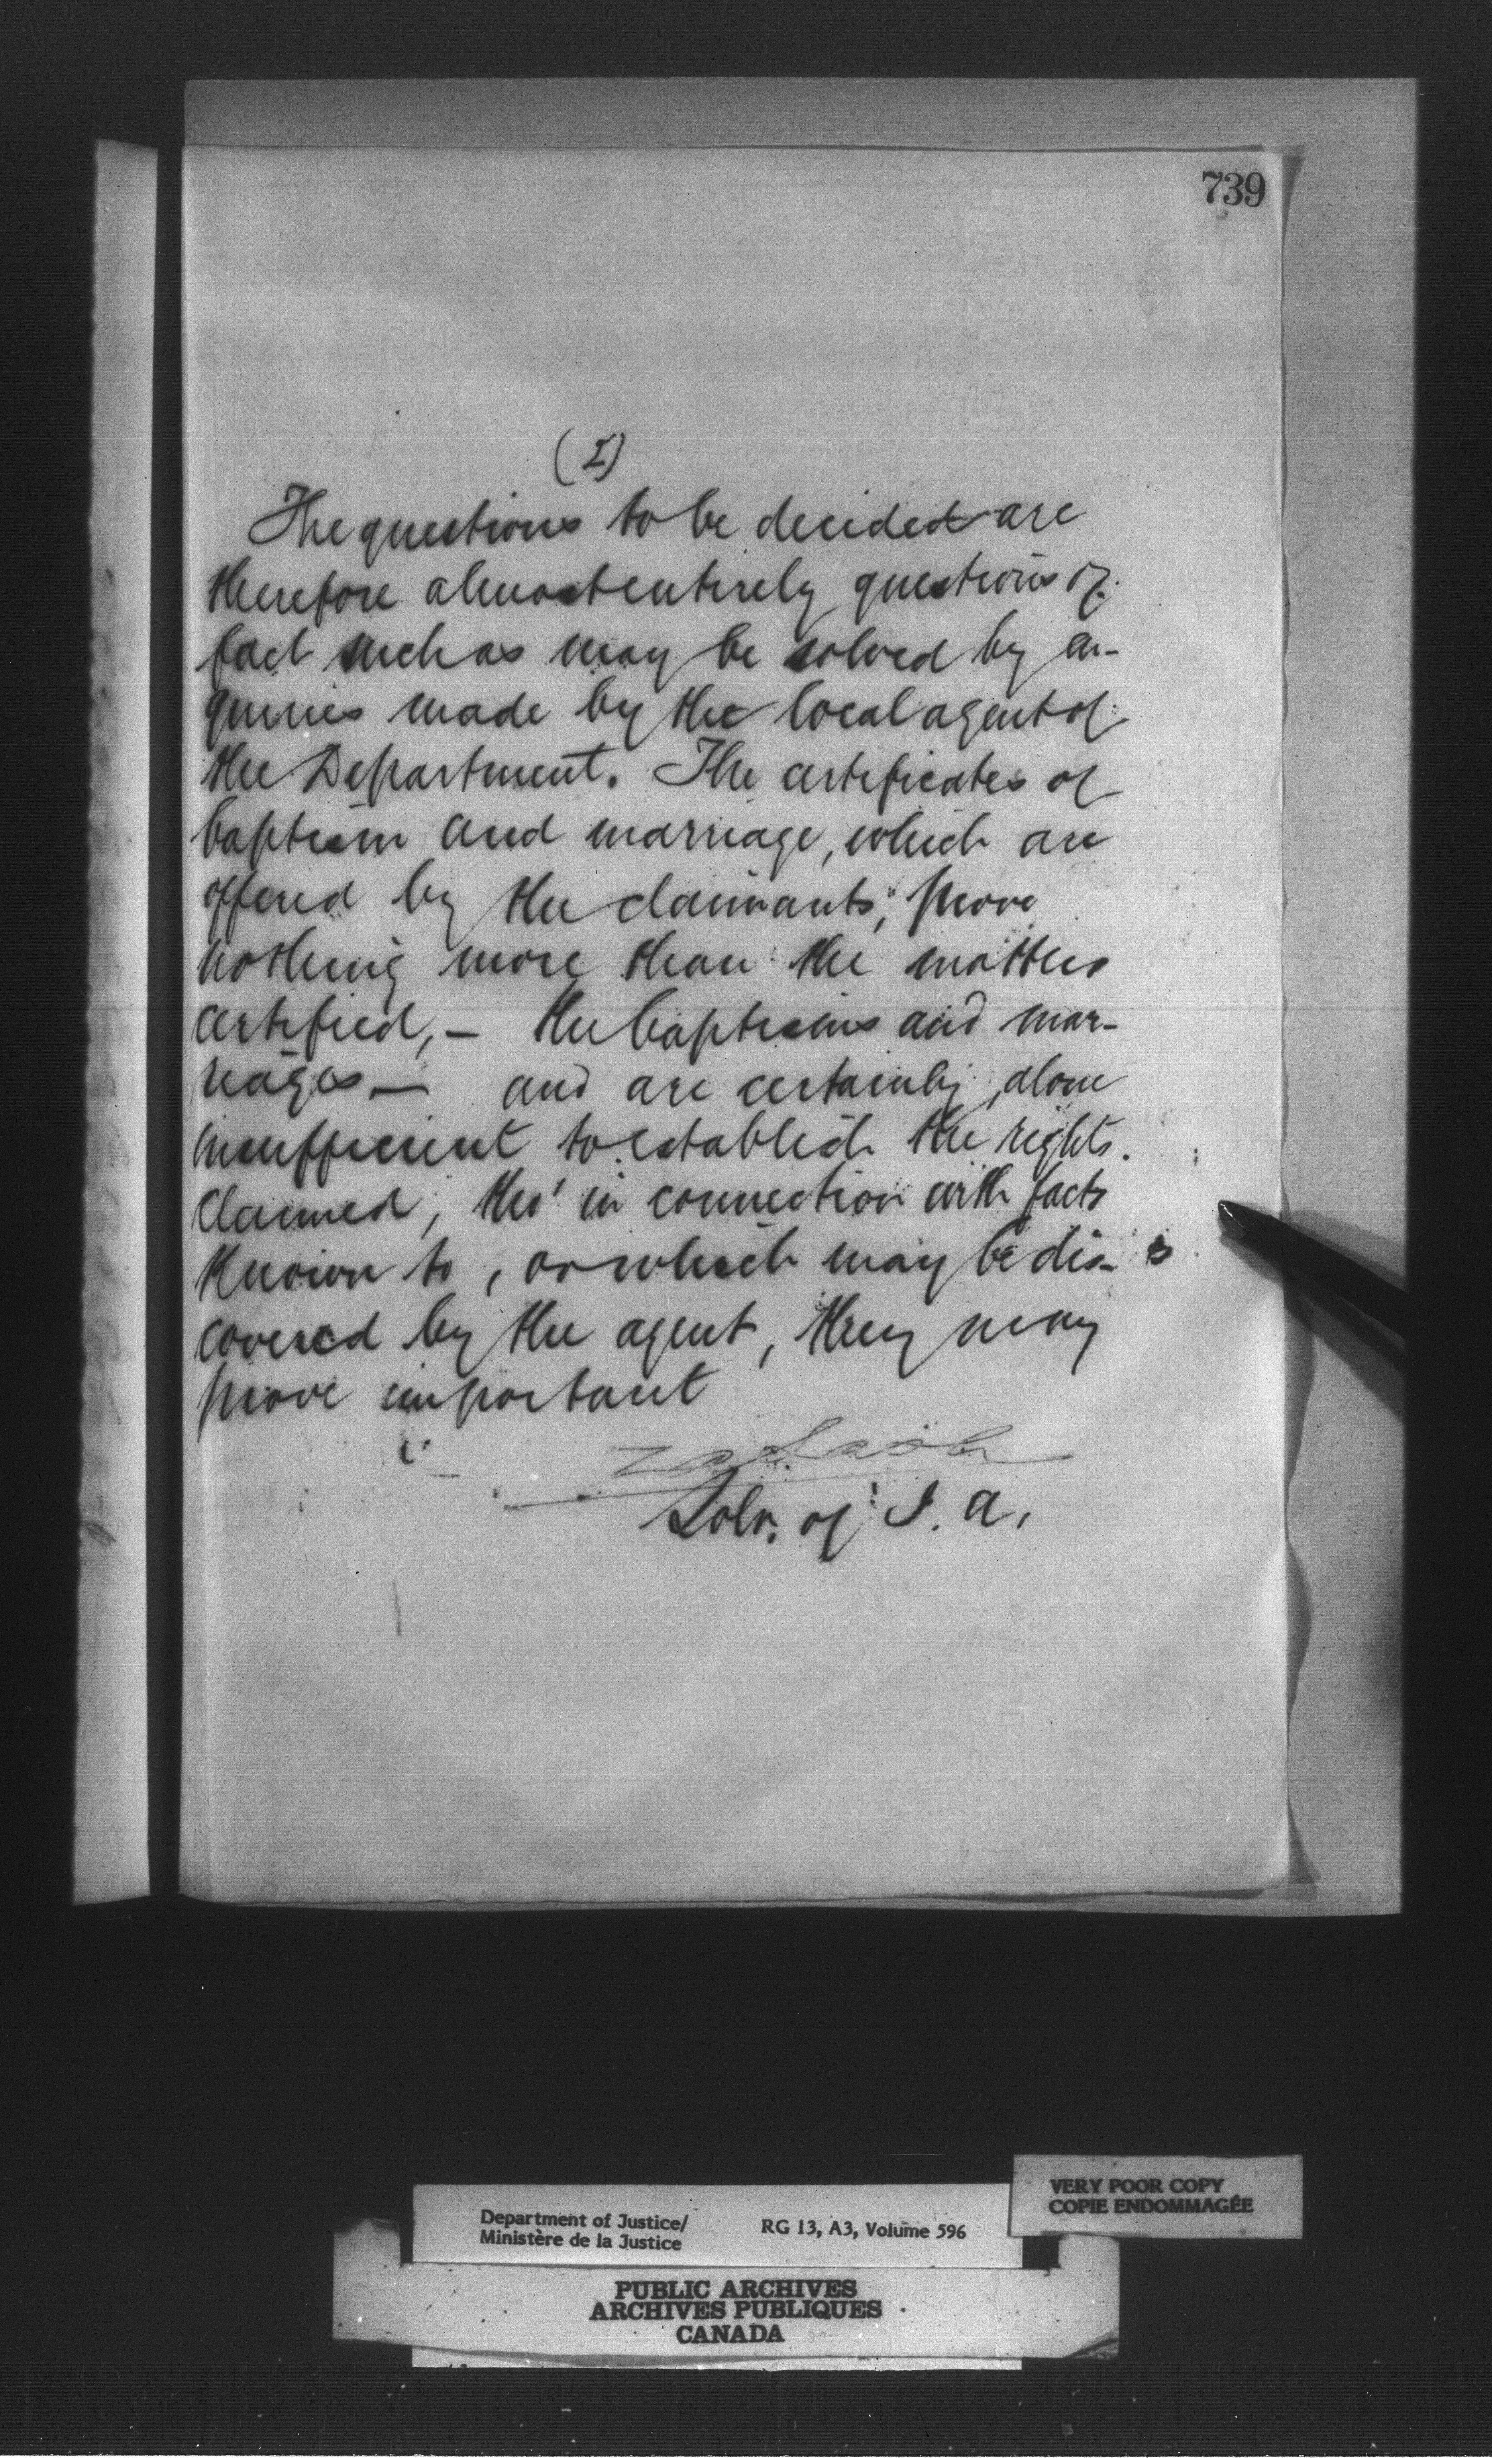 739
(2)
The questions to be decided are
therefore almost entirely questions of
fact such as may be solved by en-
quiries made by the local agent of
the Department. The certificates of
baptism and marriage, which are
offered by the claimants, prove
nothing more than the matters
certified, – the baptisms and mar-
riages – and are certainly, alone
insufficient to establish the rights
claimed, tho' in connection with facts
known to, or which may be dis-
covered by the agent, they may
prove important
Solr. of I. A.
VERY POOR COPY
COPIE ENDOMMAGÉE
Department of Justice/
Ministère de la Justice
RG 13, A3, Volume 596
PUBLIC ARCHIVES
ARCHIVES PUBLIQUES
CANADA